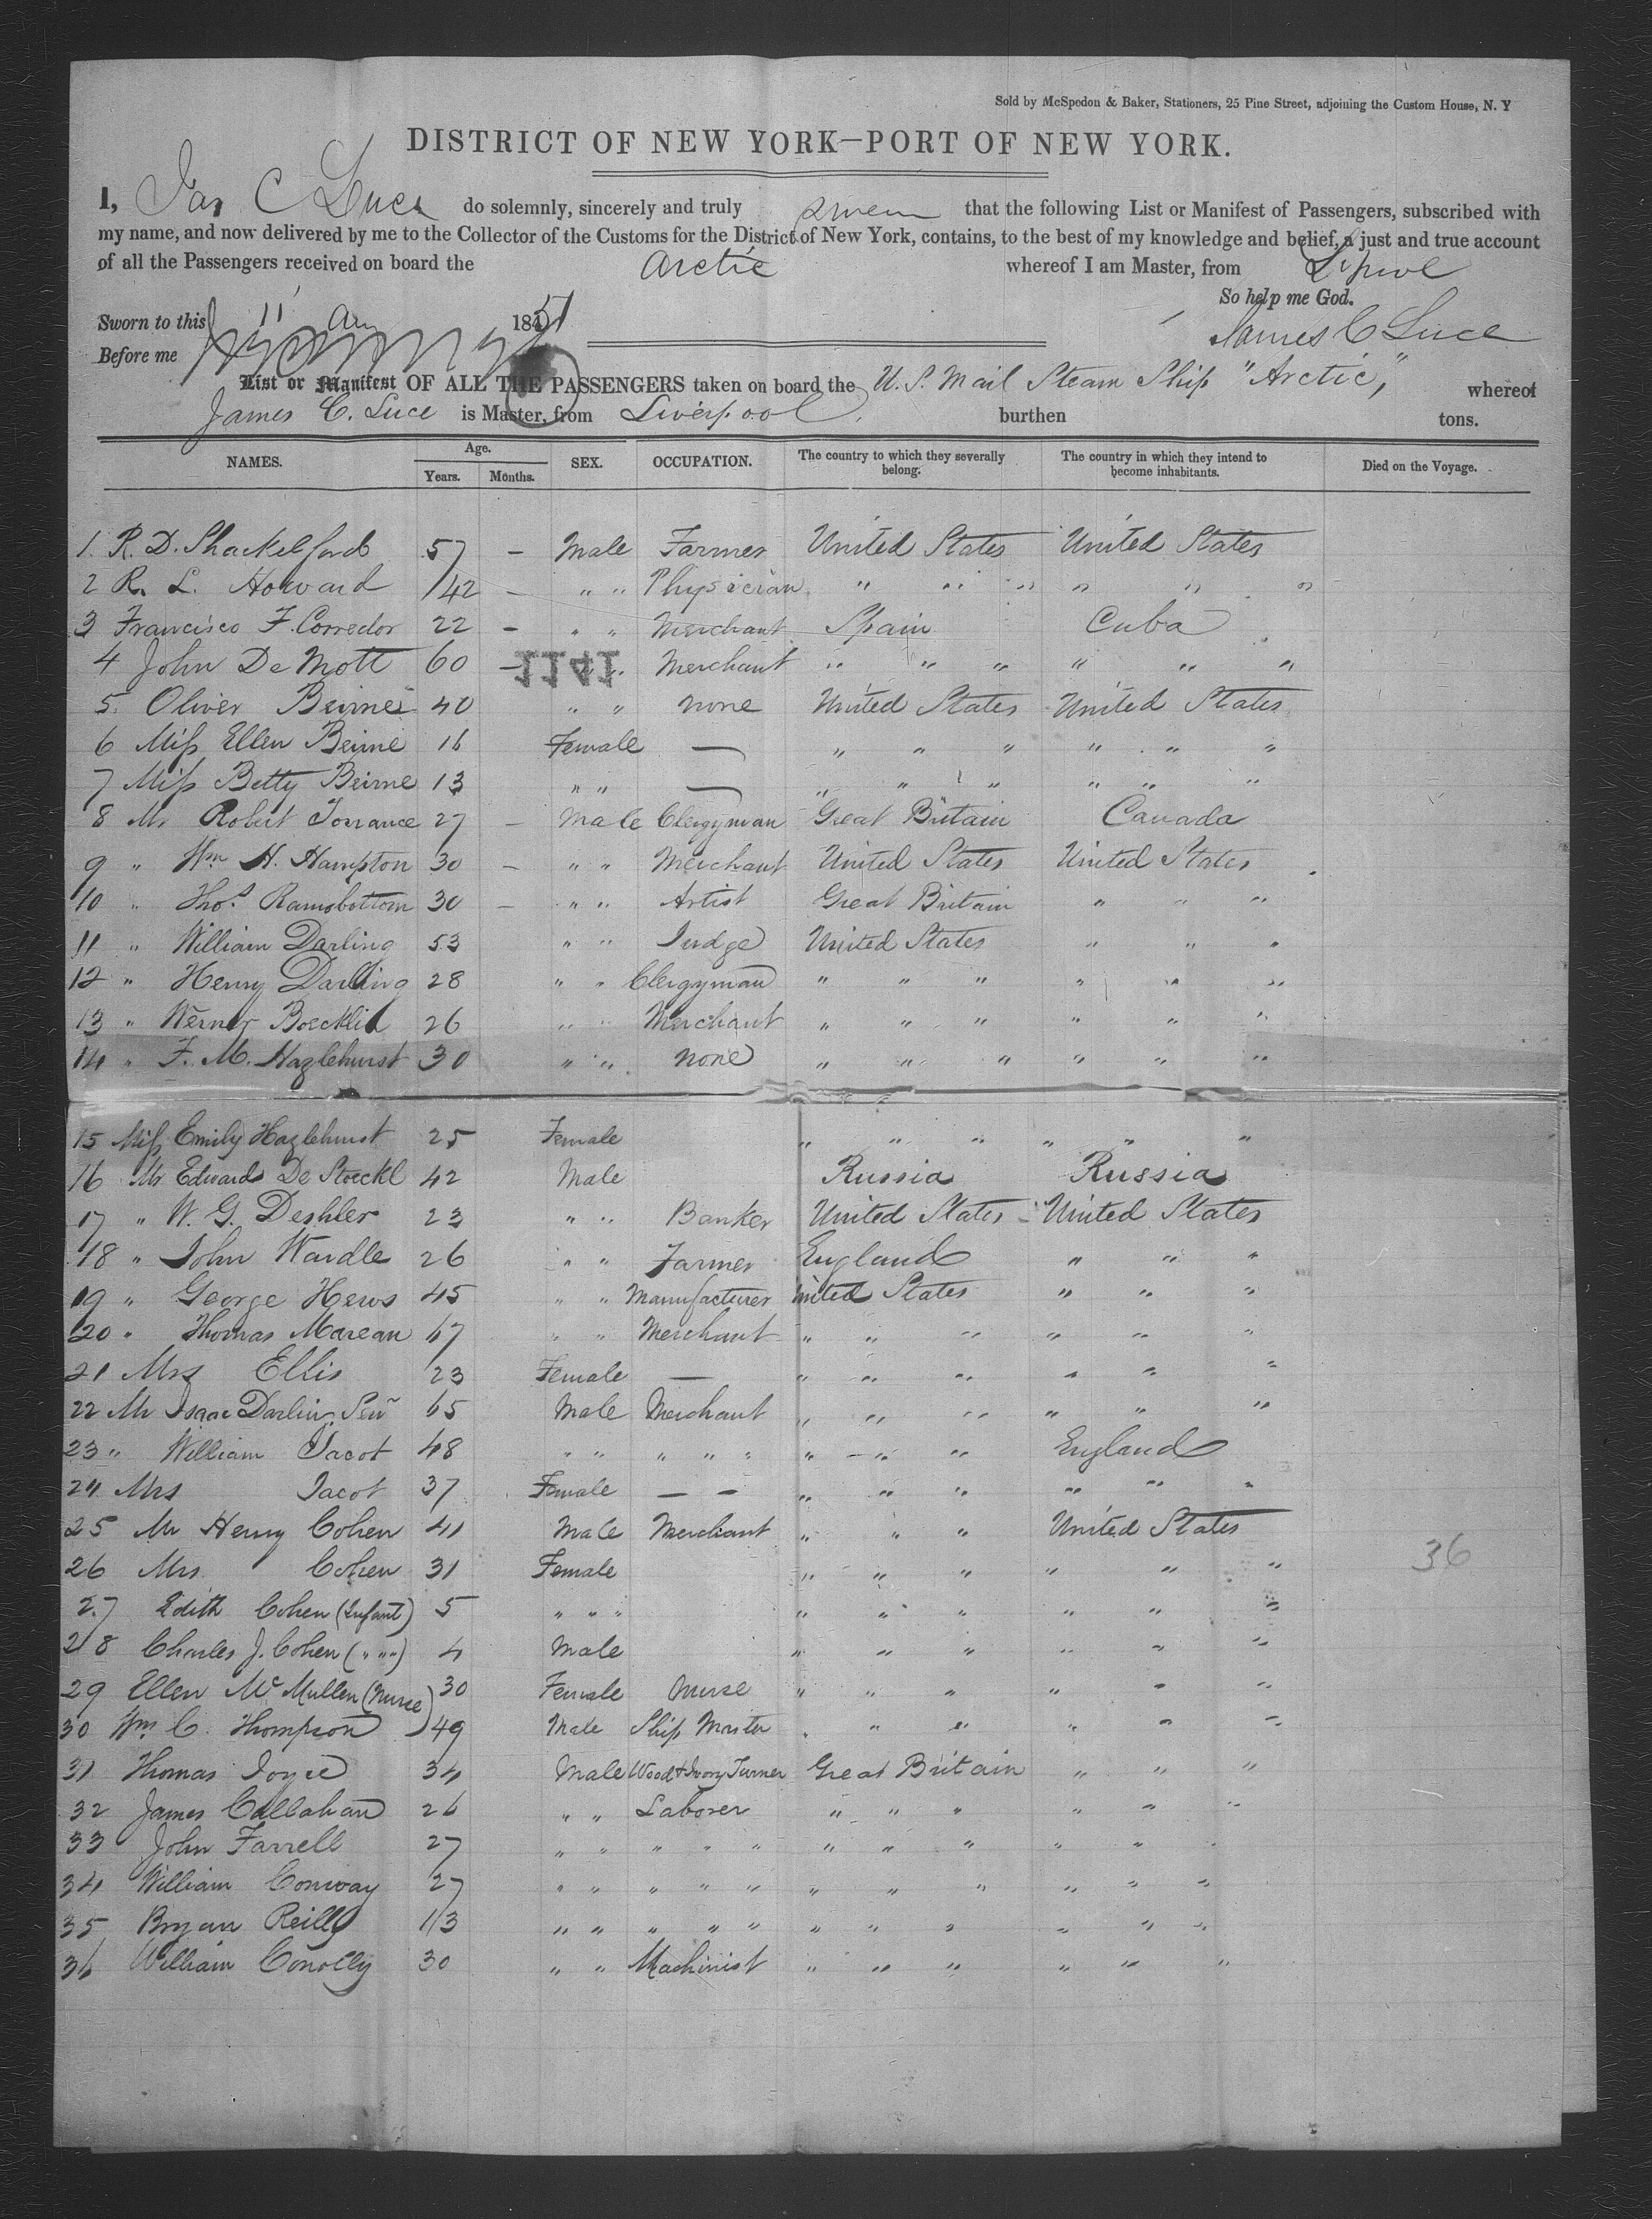 Sold by McSpedon & Baker, Stationers, 25 Pine Street, adjoining the Custom House, N. Y
DISTRICT OF NEW YORK—PORT OF NEW YORK.
I, Jas C Luce do solemnly, sincerely and truly swear that the following List or Manifest of Passengers, subscribed with
my name, and now delivered by me to the Collector of the Customs for the District of New York, contains, to the best of my knowledge and belief, a just and true account
of all the Passengers received on board the Arctic whereof I am Master, from L'pool
So help me God.
Sworn to this 11 Aug 1851
James C Luce
Before me
List or Manifest OF ALL THE PASSENGERS taken on board the U. S. Mail Steam Ship "Arctic," whereof
James C. Luce is Master, from Liverpool, burthen tons.
NAMES. Age. Years. Months. SEX. OCCUPATION. The country to which they severally belong. The country in which they intend to become inhabitants. Died on the Voyage.
1. R. D. Shackelford 57 – Male Farmer United States United States
2 R. L. Howard 42 – " " Physician " " " " " "
3 Francisco F. Corredor 22 – " " Merchant Spain Cuba
4 John De Mott 60 – 1141 " Merchant " " " " " "
5. Oliver Beirne 40 " " none United States United States
6 Miss Ellen Beirne 16 Female — " " " " " "
7 Miss Betty Beirne 13 " " — " " " " " "
8 Mr Robert Torrance 27 – Male Clergyman Great Britain Canada
9 " Wm H. Hampton 30 – " " Merchant United States United States
10 " Thos. Ramsbottom 30 – " " Artist Great Britain " " "
11 " William Darling 53 " " Judge United States " " "
12 " Henry Darling 28 " " Clergyman " " " " " "
13 " Werner Boecklin 26 " " Merchant " " " " " "
14 " F. M. Hazlehurst 30 " " none " " " " " "
15 Miss Emily Hazlehurst 25 Female " " " " " "
16 Mr Edward De Stoeckl 42 Male Russia Russia
17 " W. G. Deshler 23 " " Banker United States United States
18 " John Wardle 26 " " Farmer England " " "
19 " George Hews 45 " " Manufacturer United States " " "
20 " Thomas Marean 67 " " Merchant " " " " " "
21 Mrs Ellis 23 Female — " " " " " "
22 Mr Isaac Darlin, Senr 65 Male Merchant " " " " " "
23 " William Jacot 48 " " " " " " – " " England
24 Mrs Jacot 37 Female — – " " " " " "
25 Mr Henry Cohen 41 Male Merchant " " " United States
26 Mrs Cohen 31 Female " " " " " " 36
27 Edith Cohen (Infant) 5 " " " " " " " " "
28 Charles J. Cohen ( " " " ) 4 Male " " " " " "
29 Ellen McMullen (Nurse) 30 Female Nurse " " " " " "
30 Wm C. Thompson 49 Male Ship Master " " " " " "
31 Thomas Joyce 34 Male Wood & Ivory Turner Great Britain " " "
32 James Callahan 26 " " Laborer " " " " " "
33 John Farrell 27 " " " " " " " " " " "
34 William Conway 27 " " " " " " " " " " "
35 Bryan Reilly 13 " " " " " " " " " " "
36 William Conolly 30 " " Machinist " " " " " "